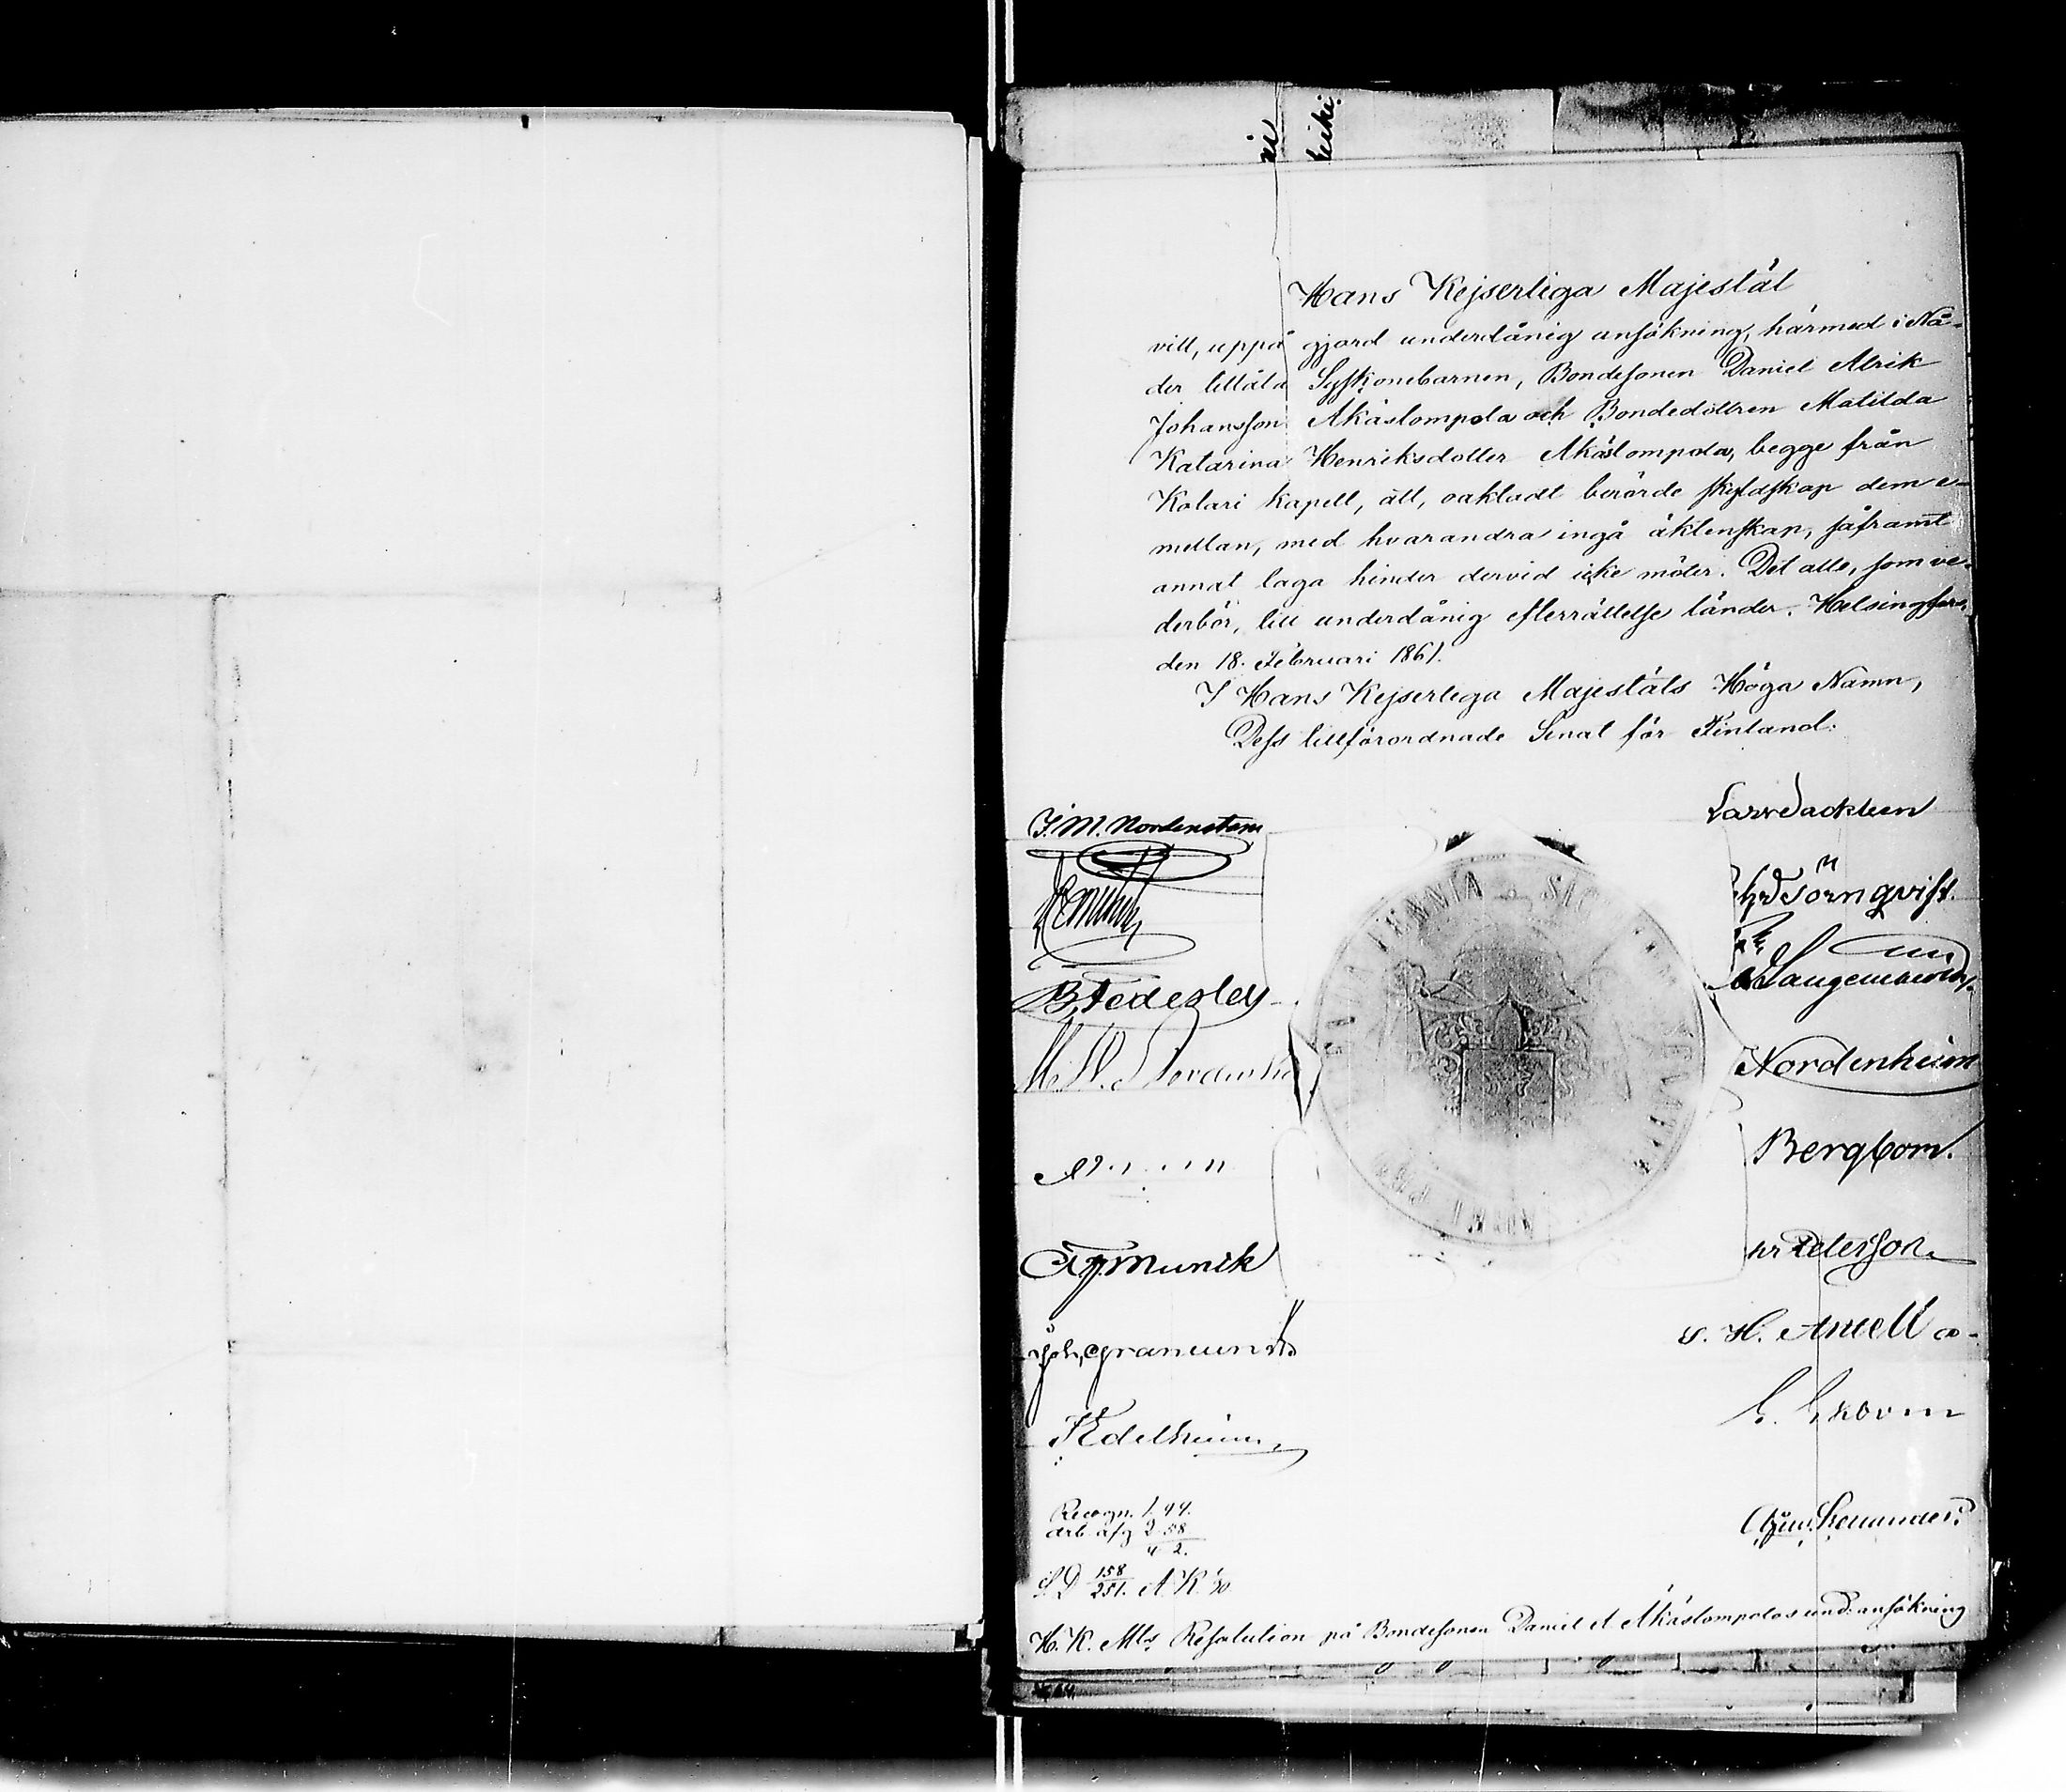 Hans Kejserliga Majestät
vill, uppå gjord underdånig ansökning, härmed i Nå-
der tillåta Syskonebarnen, Bondesonen Daniel Alrik
Johansson Äkäslompola och Bondedottren Matilda
Katarina Henriksdotter Äkäslompola, begge från
Kolari kapell, att, oaktadt berörde skyldskap dem e-
mellan, med hvarandra ingå äktenskap, såframt
annat laga hinder dervid icke möter. Det alle, som ve-
derbör, till underdånig efterrättelse länder. Helsingfors,
den 18. Februari 1861.
I Hans Kejserliga Majestäts Höga Namn,
Dess tillförordnade Senat för Finland:
J. M. Nordenstam
Lars Sackleen
Törnqvist
B Federley
Langenskiöld
Nordenheim
Bergbom.
Munck
Peterson
Joh. Granlund
S. H. Antell
Edelheim
Recogn. 1. 44.
arb afg 2 58
4 2.
S. D 158/251. A. K. 1/30
H. K. Mts Resolution på Bondesonen Daniel A Äkäslompolos und. ansökning